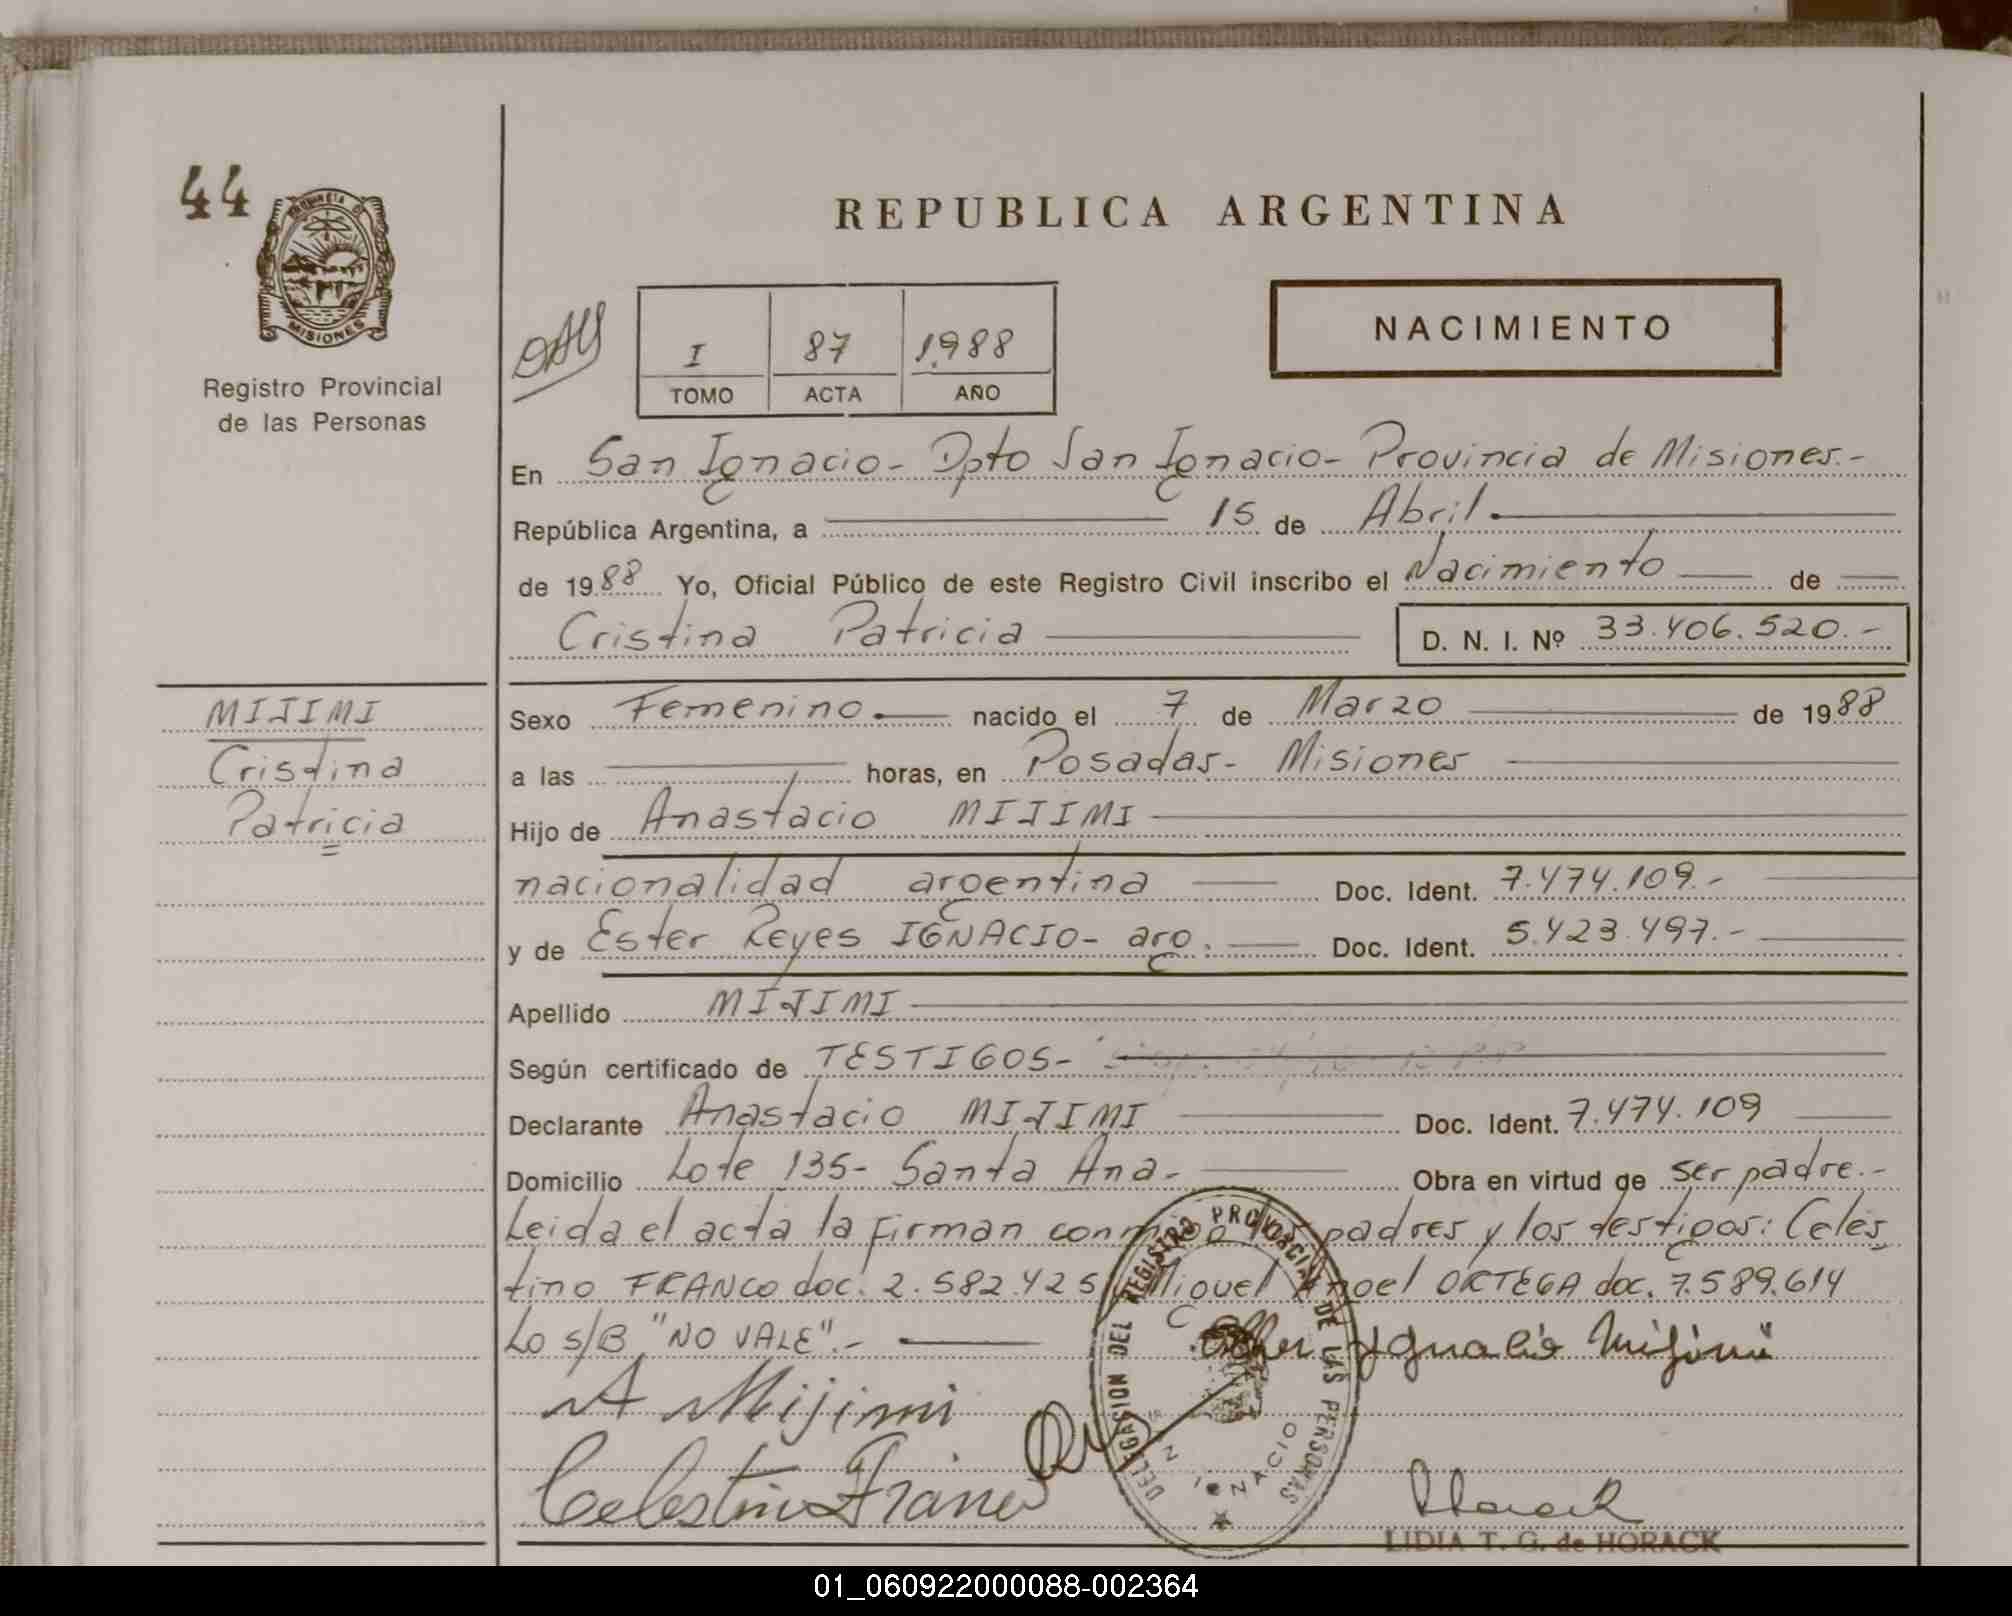 44
PROVINCIA DE
MISIONES
Registro Provincial
de las Personas
REPUBLICA ARGENTINA
I 87 1988
TOMO ACTA AÑO
NACIMIENTO
En San Ignacio- Dpto San Ignacio- Provincia de Misiones.-
República Argentina, a 15 de Abril.
de 1988 Yo, Oficial Público de este Registro Civil inscribo el Nacimiento de
Cristina Patricia D. N. I. Nº 33.406.520.-
MIJIMI
Cristina
Patricia
Sexo Femenino. nacido el 7 de Marzo de 1988
a las horas, en Posadas- Misiones
Hijo de Anastacio MIJIMI
nacionalidad argentina Doc. Ident. 7.474.109.-
y de Ester Reyes IGNACIO- arg. Doc. Ident. 5.423.497.-
Apellido MIJIMI
Según certificado de TESTIGOS-
Declarante Anastacio MIJIMI Doc. Ident. 7.474.109
Domicilio Lote 135- Santa Ana- Obra en virtud de ser padre.-
Leida el acta la firman conmigo los padres y los testigos: Celes
tino FRANCO doc. 2.582.425 Miguel Angel ORTEGA doc. 7.589.614
Lo s/B "NO VALE".-
Ignacio Mijimi
A Mijimi
Celestino Franco
DELEGACION DEL REGISTRO PROVINCIAL DE LAS PERSONAS
IGNACIO
Horack
LIDIA T. G. de HORACK
01_060922000088-002364